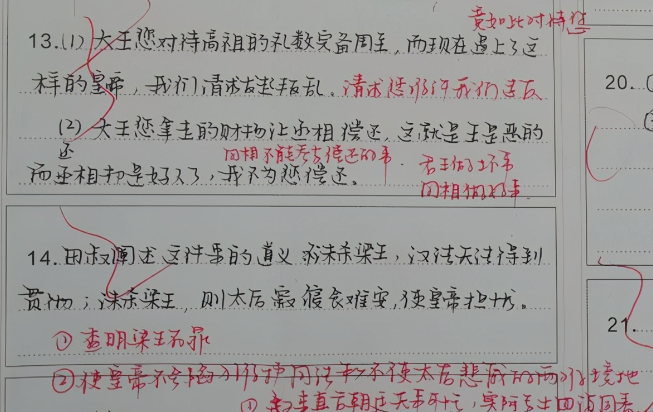 竟如此对待您
13.(1) 大王您对待高祖的礼数完备周至，而现在遇上了这
样的皇帝，我们请求去叛乱。请求您允许我们造反
(2) 大王您拿走的财物让丞相偿还，这就是王是恶的
还
因相不能参与偿还的事. 君王做了坏事
而丞相却是好人了，我不为您偿还。
因相做好事
14. 田叔阐述这件事的道义 若未杀梁王，汉法无法得到
贯彻；诛杀梁王，则太后寝食难安，使皇帝担忧。
① 查明梁王有罪
②使皇帝不会陷入 不使太后悲 境地
20.
21.